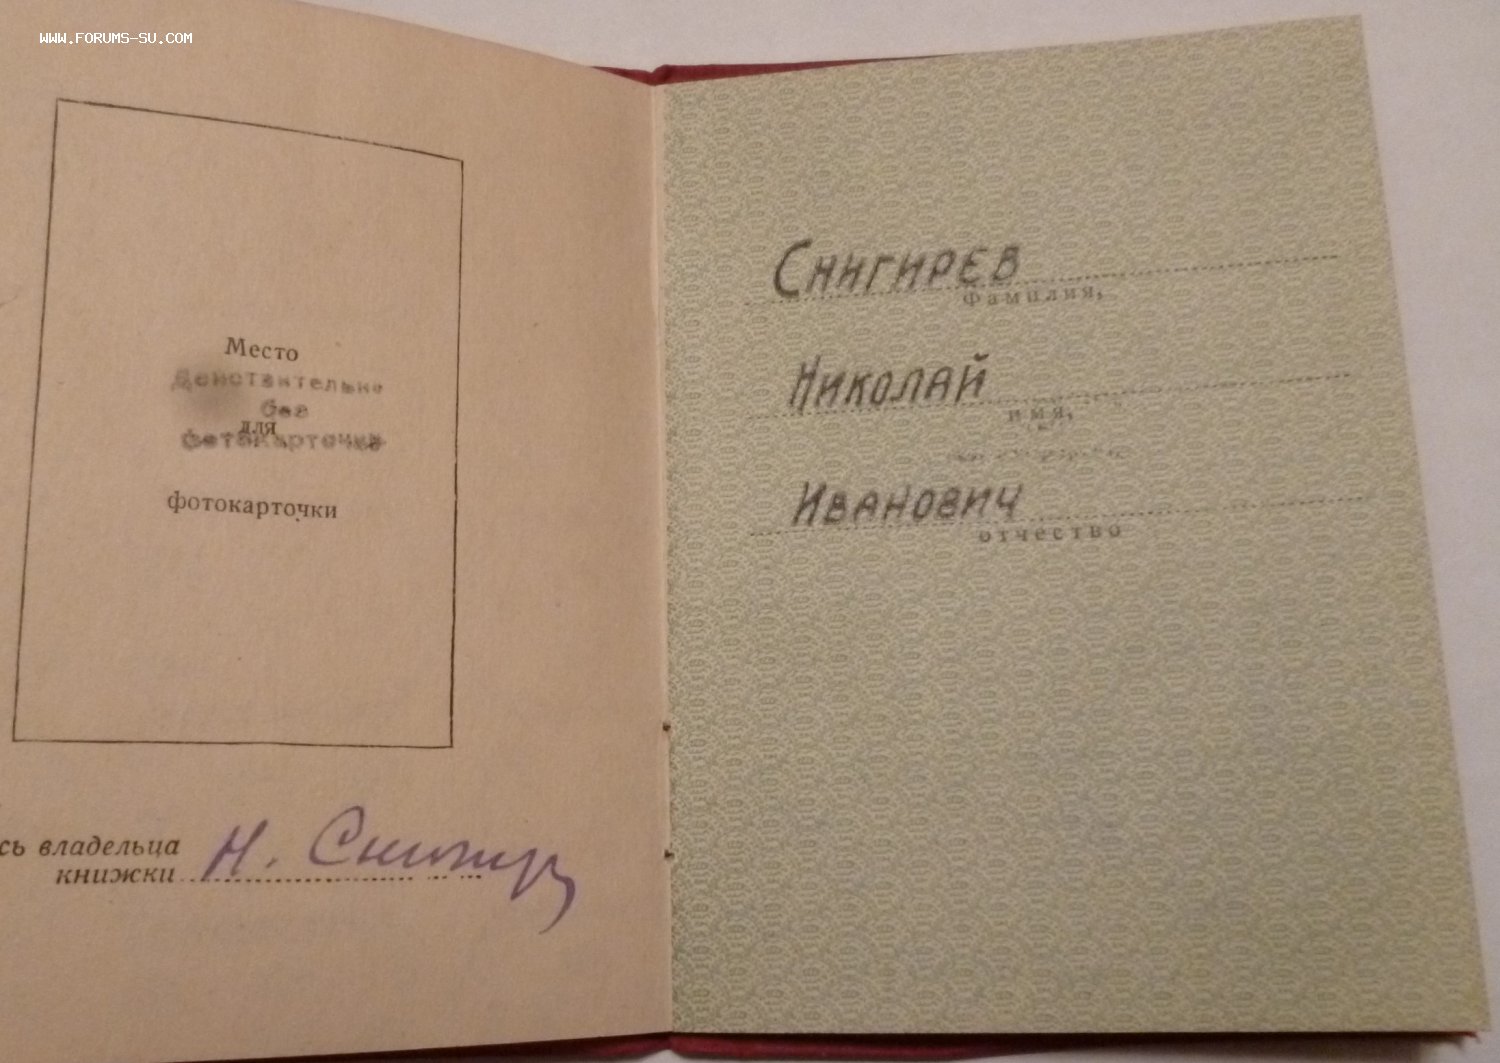 WWW.FORUMS-SU.COM
Место
Действительно
без
для
фотокарточки
фотокарточки
сь владельца
книжки
Н. Снигир
Снигирев
фамилия,
Николай
имя,
Иванович
отчество